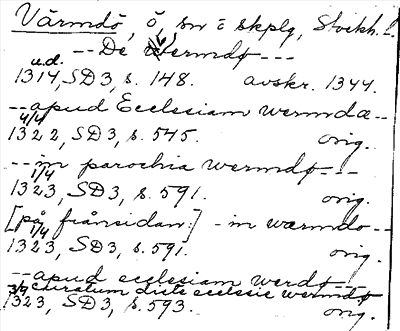 Värmdö, ö, sn i skplg, Stockh. l.
--- De wermdø ---
u.d.
1314, SD3, s. 148. avskr. 1344.
--- apud Ecclesiam wermdæ --
4/4
1322, SD3, s. 545. orig.
--- in parochia wermdø ---
1/4
1323, SD3, s. 591. orig.
[på frånsidan:] - in wærmdo --
1/4
1323, SD3, s. 591. orig.
--- apud ecclesiam werdø ---
curatum dicte ecclesie wermdø
3/9
1323, SD3, s. 593. orig.